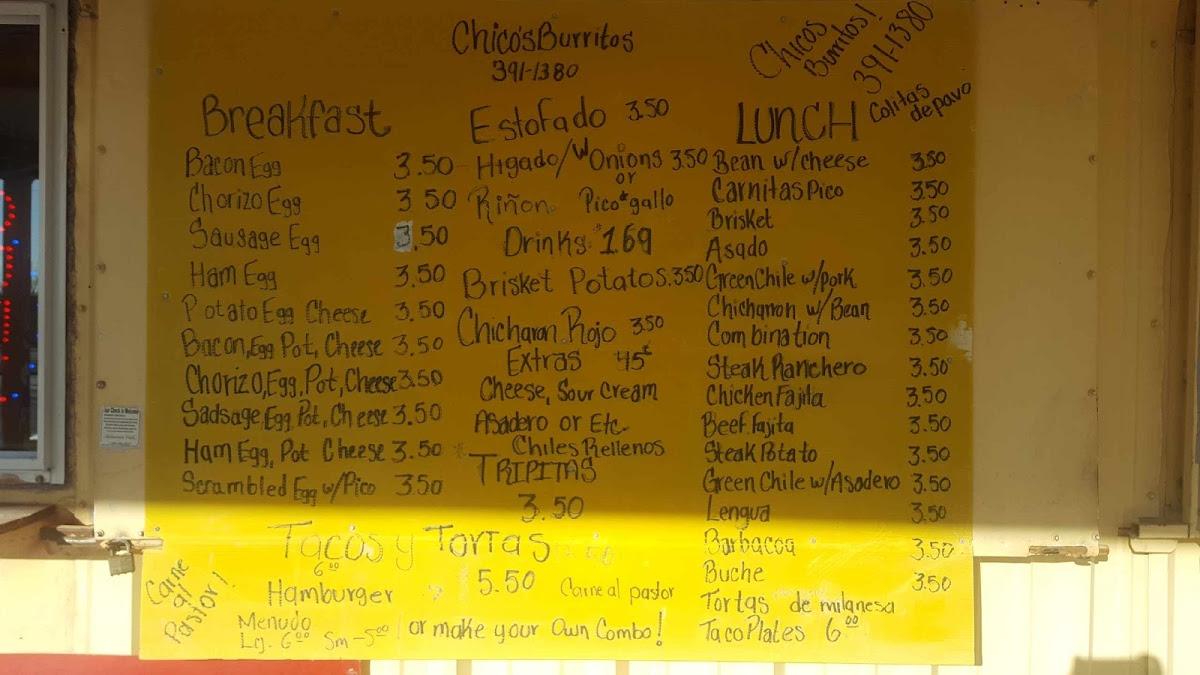 Chico's Burritos
391-1380
Chicos
Burritos!
391-1380
Breakfast
Bacon Egg 3.50
Chorizo Egg 3 50
Sausage Egg 3.50
Ham Egg 3.50
Potato Egg Cheese 3.50
Bacon, Egg Pot, Cheese 3.50
Chorizo, Egg, Pot, Cheese 3.50
Sadsage, Egg, Pot, Cheese 3.50
Ham Egg, Pot Cheese 3.50
Scrambled Egg w/Pico 3.50
Estofado 3.50
Higado/W Onions 3.50
or
Riñon Pico*gallo
Drinks $1.69
Brisket Potatos. 3.50
Chicharon Rojo 3.50
Extras 45¢
Cheese, Sour Cream
Asadero or Etc.
Chiles Rellenos
TRIPITAS
3.50
LUNCH
Colitas
de pavo
Bean w/cheese 3.50
Carnitas Pico 3.50
Brisket 3.50
Asado 3.50
Green Chile w/pork 3.50
Chicharron w/Bean 3.50
Combination 3.50
Steak Ranchero 3.50
Chicken Fajita 3.50
Beef Fajita 3.50
Steak Potato 3.50
Green Chile w/Asadero 3.50
Lengua 3.50
Barbacoa 3.50
Buche 3.50
Tortas de milanesa
Taco Plates 6.00
Tacos y Tortas
6.00
Hamburger 5.50 Carne al pastor
Carne
al
Pastor!
Menudo
Lrg. 6.00 Sm-5.00
or make your Own Combo!